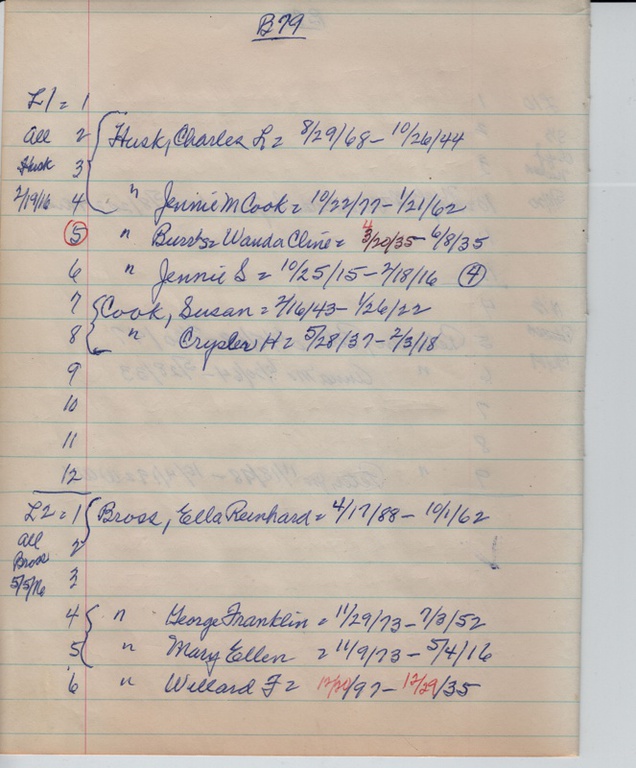 B79
L1 = 1
All 2 Husk, Charles L = 8/29/68 - 10/26/44
Husk 3
2/19/16 4 " Jennie M Cook = 10/22/77 - 1/21/62
5 " Burrts = Wanda Cline = /20/35 - 6/8/35
6 " Jennie S = 10/25/15 - 2/18/16 4
7 Cook, Susan = 2/16/43 - 1/26/22
8 " Crysler H = 5/28/37 - 2/3/18
9
10
11
12
L2 = 1 Bross, Ella Reinhard = 4/17/88 - 10/1/62
All 2
Bross
5/5/16 3
4 " George Franklin = 11/29/73 - 7/3/52
5 " Mary Ellen = 11/9/73 - 5/4/16
6 " Willard F = /97 - 12/29/35